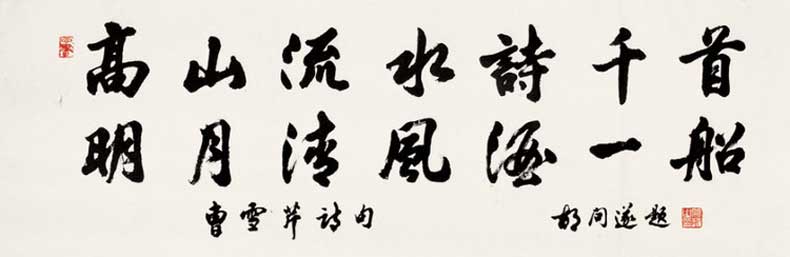 高山流水詩千首
明月清風酒一船
曹雪芹诗句 胡问遂题